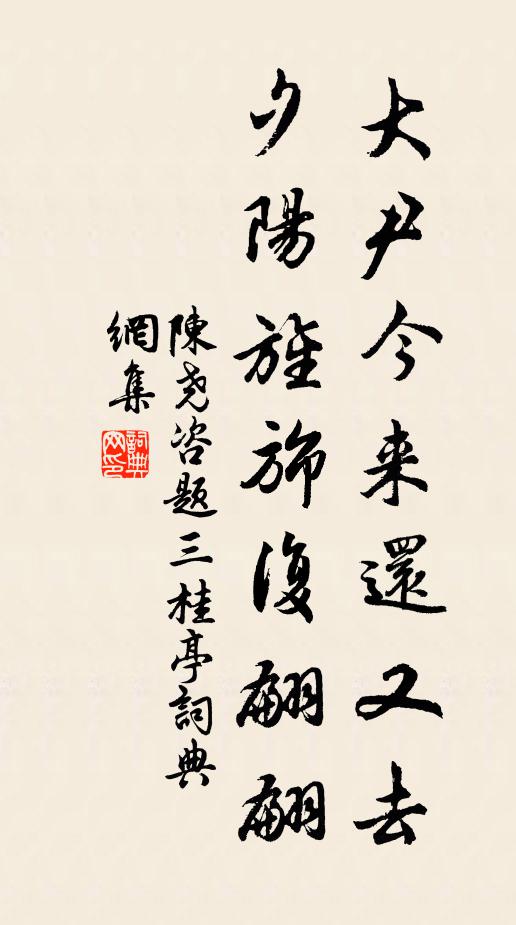 大尹今来還又去
夕陽旌旆復翩翩
陳尧咨题三桂亭詞典
網集
詞典
网印